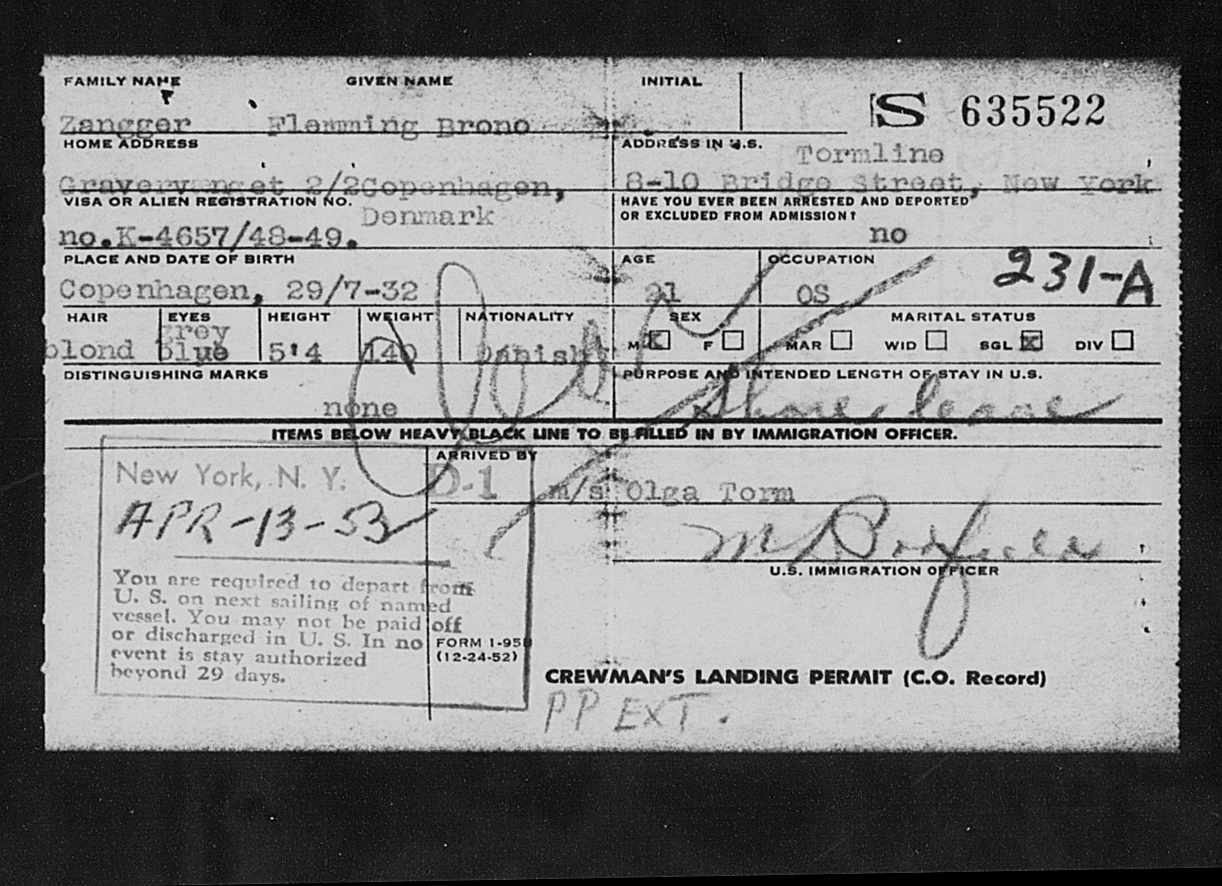 FAMILY NAME GIVEN NAME INITIAL
S 635522
Zangger Flemming Brono
HOME ADDRESS ADDRESS IN U.S.
Tormline
2/2 Copenhagen, 8-10 Bridge Street, New York
VISA OR ALIEN REGISTRATION NO. HAVE YOU EVER BEEN ARRESTED AND DEPORTED
Denmark OR EXCLUDED FROM ADMISSION?
no.K-4657/48-49. no
PLACE AND DATE OF BIRTH AGE OCCUPATION
231-A
Copenhagen, 29/7-32 21 OS
HAIR EYES HEIGHT WEIGHT NATIONALITY SEX MARITAL STATUS
grey
blond blue 5'4 140 Danish M X F MAR WID SGL X DIV
DISTINGUISHING MARKS PURPOSE AND INTENDED LENGTH OF STAY IN U.S.
none Shore leave
ITEMS BELOW HEAVY BLACK LINE TO BE FILLED IN BY IMMIGRATION OFFICER.
ARRIVED BY
New York, N. Y. D-1 m/s Olga Torm
APR-13-53
U.S. IMMIGRATION OFFICER
You are required to depart from
U. S. on next sailing of named
vessel. You may not be paid off
or discharged in U. S. In no
event is stay authorized
beyond 29 days.
FORM I-95B
(12-24-52)
CREWMAN'S LANDING PERMIT (C.O. Record)
PP EXT.